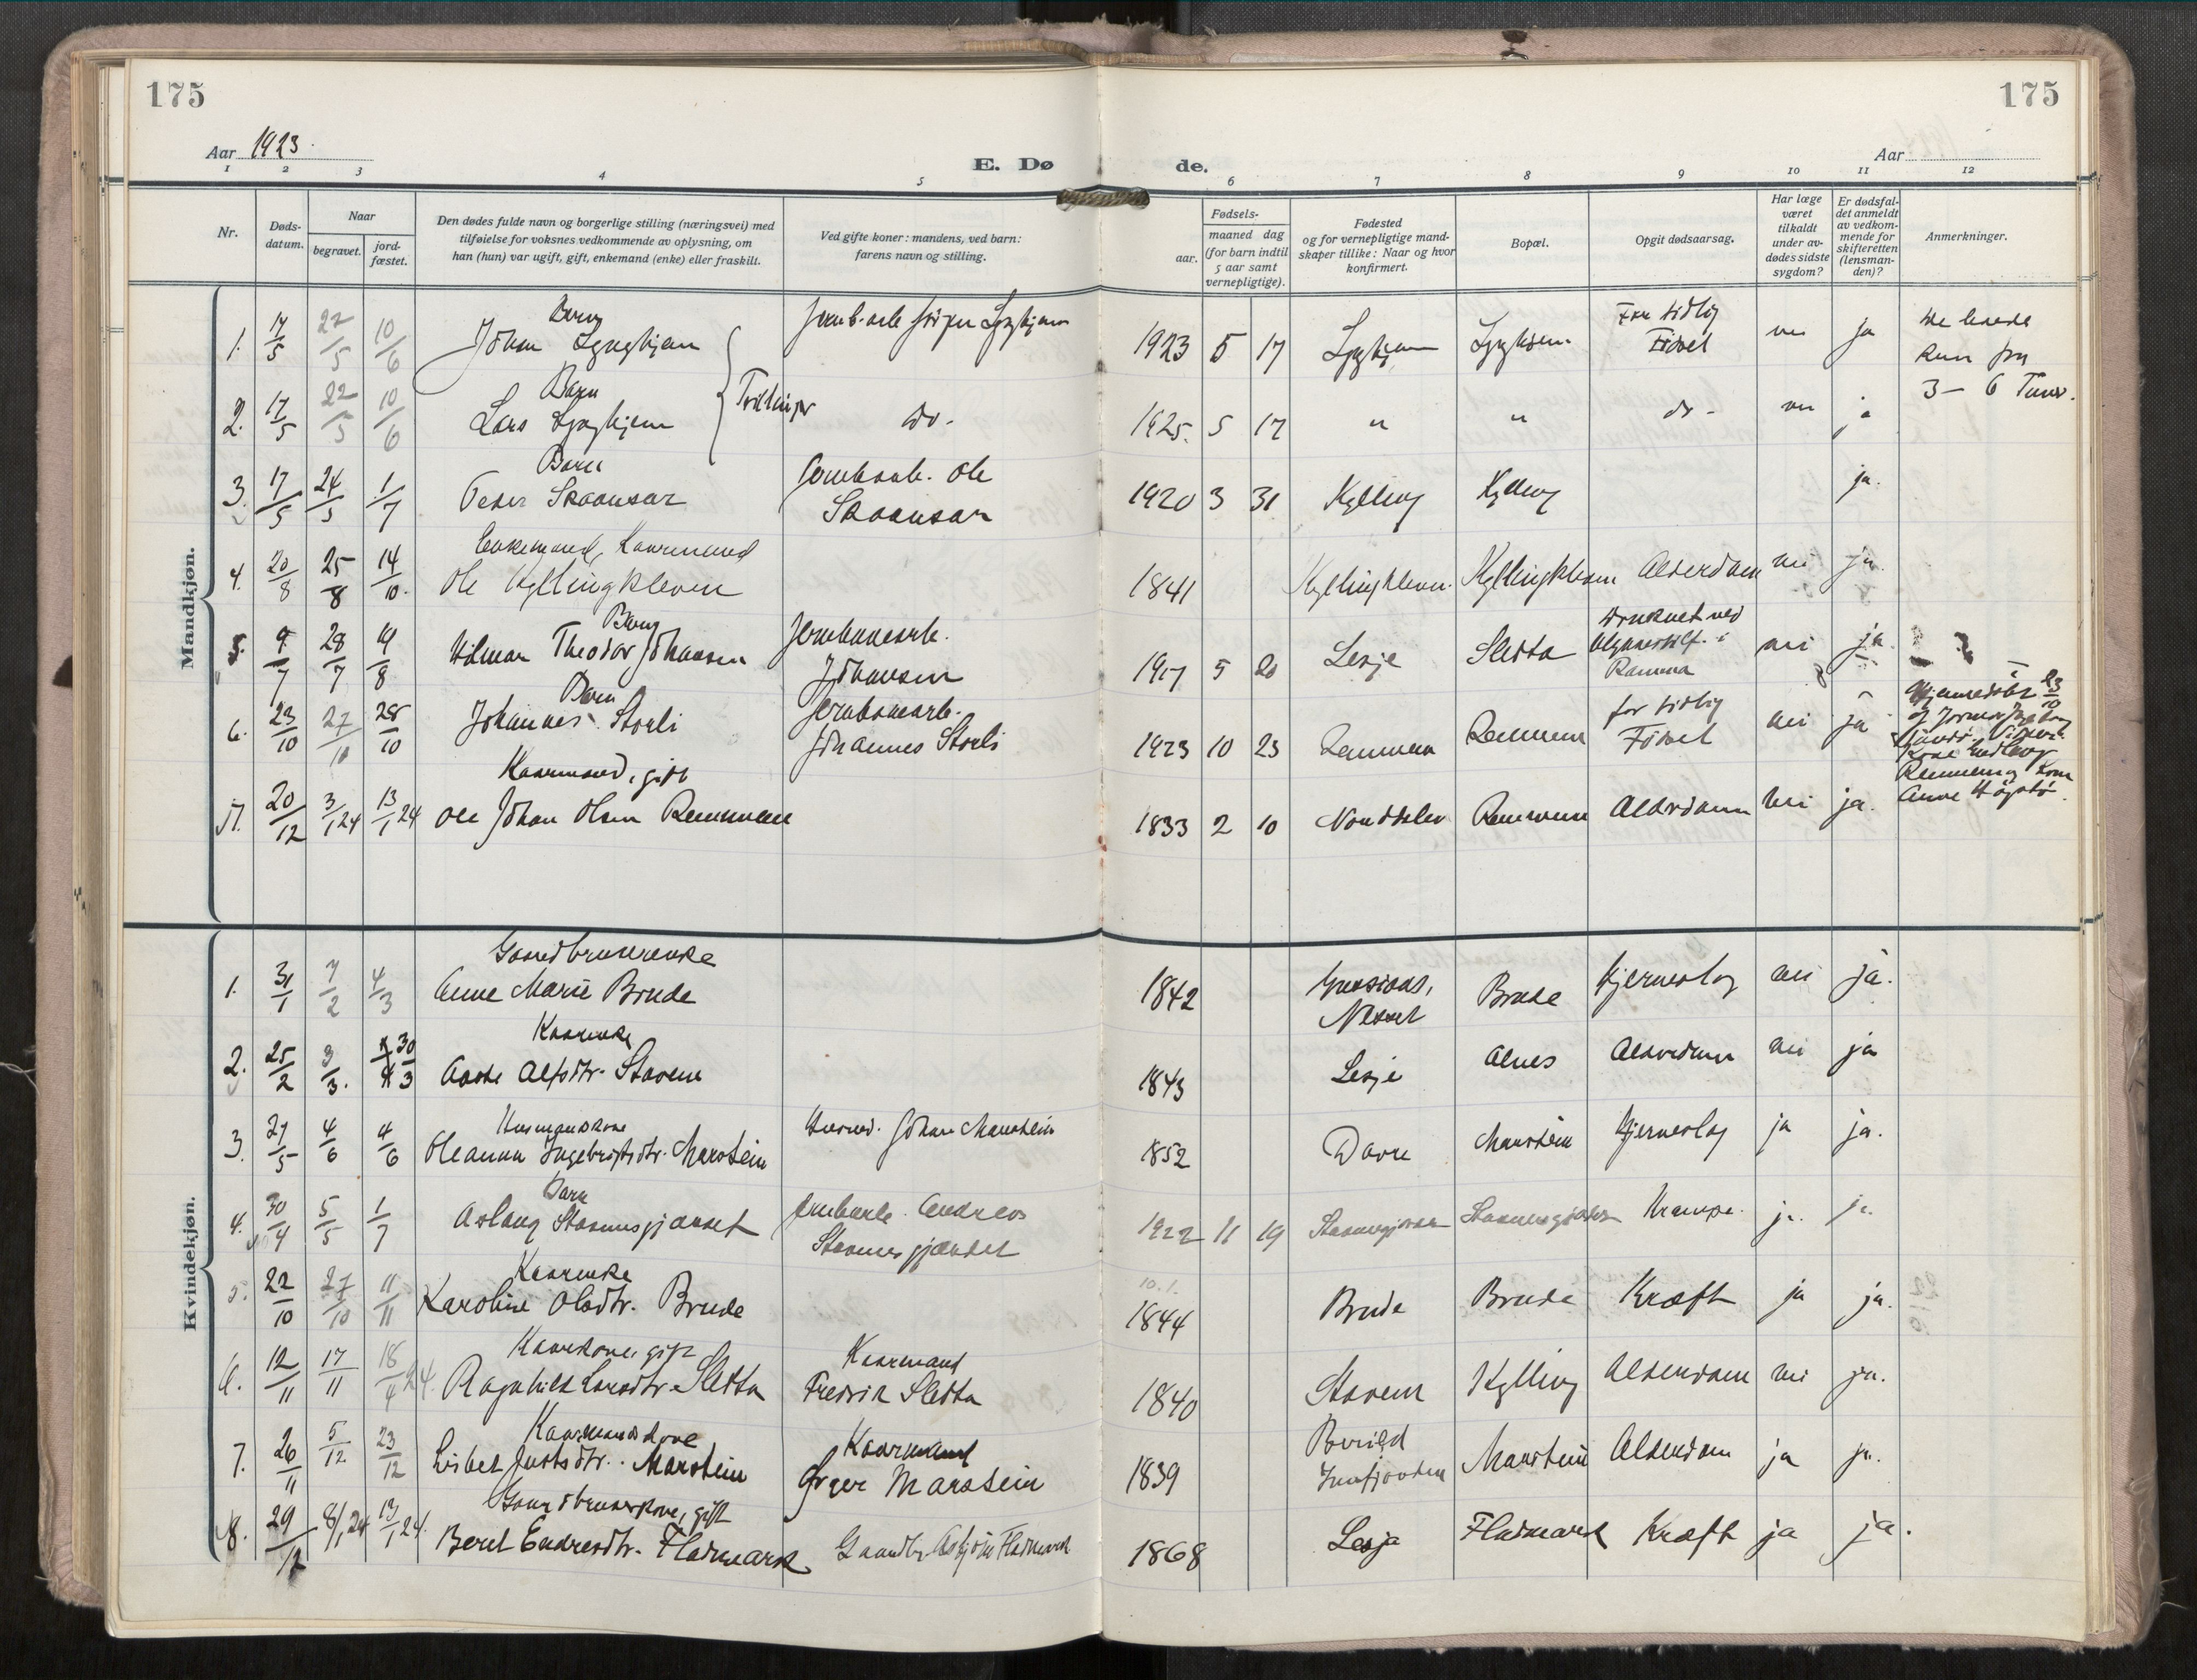 175
175
Aar 1923.
E. Døde.
Aar
1 2 3 4 5 6 7 8 9 10 11 12
Nr.
Døds-
datum.
Naar
begravet.
jord-
fæstet.
Den dødes fulde navn og borgerlige stilling (næringsvei) med
tilføielse for voksnes vedkommende av oplysning, om
han (hun) var ugift, gift, enkemand (enke) eller fraskilt.
Ved gifte koner: mandens, ved barn:
farens navn og stilling.
Fødsels-
aar.
maaned dag
(for barn indtil
5 aar samt
vernepligtige).
Fødested
og for vernepligtige mand-
skaper tillike: Naar og hvor
konfirmert.
Bopæl.
Opgit dødsaarsag.
Har læge
været
tilkaldt
under av-
dødes sidste
sygdom?
Er dødsfal-
det anmeldt
av vedkom-
mende for
skifteretten
(lensman-
den)?
Anmerkninger.
Mandkjøn.
Barn
1. 17/5 22/5 10/6 Johan Lynghjem 1923 5 17 Lynghjem Lynghjem For tidlig Født nei ja
Barn
2. 17/5 22/5 10/6 Lars Lynghjem Trillinger do. 5 17 " " do - nei ja
3 - 6 Timer.
Barn
3. 17/5 24/5 1/7 Peder Skaansar Ole Skaansar 1920 3 31 Kylling Kylling ja.
Enkemand, Kaarmand
4. 20/8 25/8 14/10. Ole Kyllingkleven 1841 Kyllingkleven. Kyllingkleven Alderdom nei ja.
Barn
5. 9/7 28/7 19/8 Hilmar Theodor Johansen Jernbanearb. Johansen 1917 5 20 Lesje Sletta Druknet ved i Rauma nei ja
Barn
6. 23/10 27/10 28/10 Johannes Storli Jernbanearb. Johannes Storli 1923 10 23 Remmem Remmem for tidlig Født nei ja
Kaarmand, gift
7. 20/12 3/1 24 13/1 24 Ole Johan Olsen Remmem 1833 2 10 Remmem Alderdom nei ja.
Kvindekjøn.
Gaardbrukerenke
1. 31/1 7/2 4/3 Anne Marie Brude 1842 Brude Hjerneslag nei ja.
Kaarenke
2. 25/2 3/3. 30/3 Aase Alfsdtr. Stavem 1843 Lesje Alnes Alderdom nei ja
Husmandskone
3. 27/5 4/6 4/6 Oleanna Ingebrigtsdtr. Marstein Husmd. Johan Marstein 1852 Dovre Marstein Hjerneslag ja ja.
Barn
4. 30/4 5/5 1/7 Aslaug Stavemsgjærdet Andreas Stavemsgjærdet 1922 11 19 Krampe. ja. ja.
Kaarenke
5. 22/10 27/10 11/11 Karoline Olsdtr. Brude 10.1. 1844 Brude Brude Kræft ja ja.
Kaarkone, gift
6. 12/11 17/11 18/4 24. Ragnhild Larsdtr. Sletta Kaarmand Fredrik Sletta 1840 Stavem Kylling Alderdom nei ja.
Kaarmandskone
7. 26/11 5/12 23/12 Lisbet Justsdtr. Marstein Kaarmand Marstein 1839 Marstein Alderdom ja ja.
Gaardbrukerkone, gift
8. 29/12 8/1 24 13/1 24. Beret Endresdtr. Flatmark Gaardbr. Asbjørn Flatmark 1868 Lesja Flatmark Kræft ja ja.